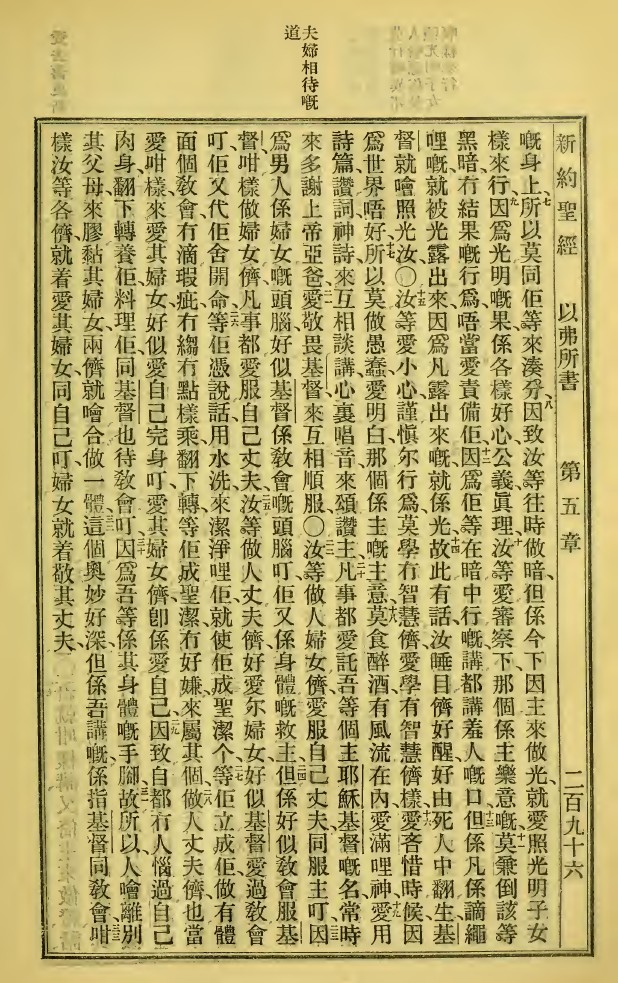 夫婦相待嘅
道
新約聖經 以弗所書 第五章 二百九十六
嘅身上、七所以莫同佢等來湊分、八因致汝等往時做暗、但係今下因主來做光、就愛照光明子女
樣來行、九因爲光明嘅果係各樣好心公義眞理、十汝等愛審察下、那個係主樂意嘅、十一莫兼倒該等
黑暗冇結果嘅行爲、唔當愛責備佢、十二因爲佢等在暗中行嘅、講都講羞人嘅口、十三但係凡係謫繩
哩嘅、就被光露出來、因爲凡露出來嘅、就係光、十四故此有話、汝睡目儕好醒、好由死人中翻生、基
督就噲照光汝、〇十五汝等愛小心謹愼尔行爲、莫學冇智慧儕、愛學有智慧儕樣、十六愛吝惜時候、因
爲世界唔好、十七所以莫做愚蠢、愛明白那個係主嘅主意、十八莫食醉酒、有風流在內、愛滿哩神、十九愛用
詩篇讚詞神詩、來互相談講、心裏唱音來頌讚主、二十凡事都愛託吾等個主耶穌基督嘅名、常時
來多謝上帝亞爸、二一愛敬畏基督、來互相順服、〇二二汝等做人婦女儕、愛服自己丈夫、同服主叮、二三因
爲男人係婦女嘅頭腦、好似基督係敎會嘅頭腦叮、佢又係身體嘅救主、二四但係好似敎會服基
督咁樣、做婦女儕、凡事都愛服自己丈夫、二五汝等做人丈夫儕、好愛尔婦女、好似基督愛過敎會
叮、佢又代佢舍開命、二六等佢憑說話、用水洗來潔淨哩佢、就使佢成聖潔个、二七等佢立成佢做有體
面個敎會、冇滴瑕疵、冇縐冇點樣、乘翻下轉、等佢成聖潔冇好嫌、來屬其個、二八做人丈夫儕、也當
愛咁樣來愛其婦女、好似愛自己完身叮、愛其婦女儕、卽係愛自己、二九因致自都冇人惱過自己
肉身、翻下轉養佢料理佢、同基督也待敎會叮、三十因爲吾等係其身體嘅手腳、三一故所以人噲離別
其父母、來膠黏其婦女、兩儕就噲合做一體、三二這個奧妙好深、但係吾講嘅、係指基督同敎會、三三咁
樣汝等各儕就着愛其婦女、同自己叮、婦女就着敬其丈夫、